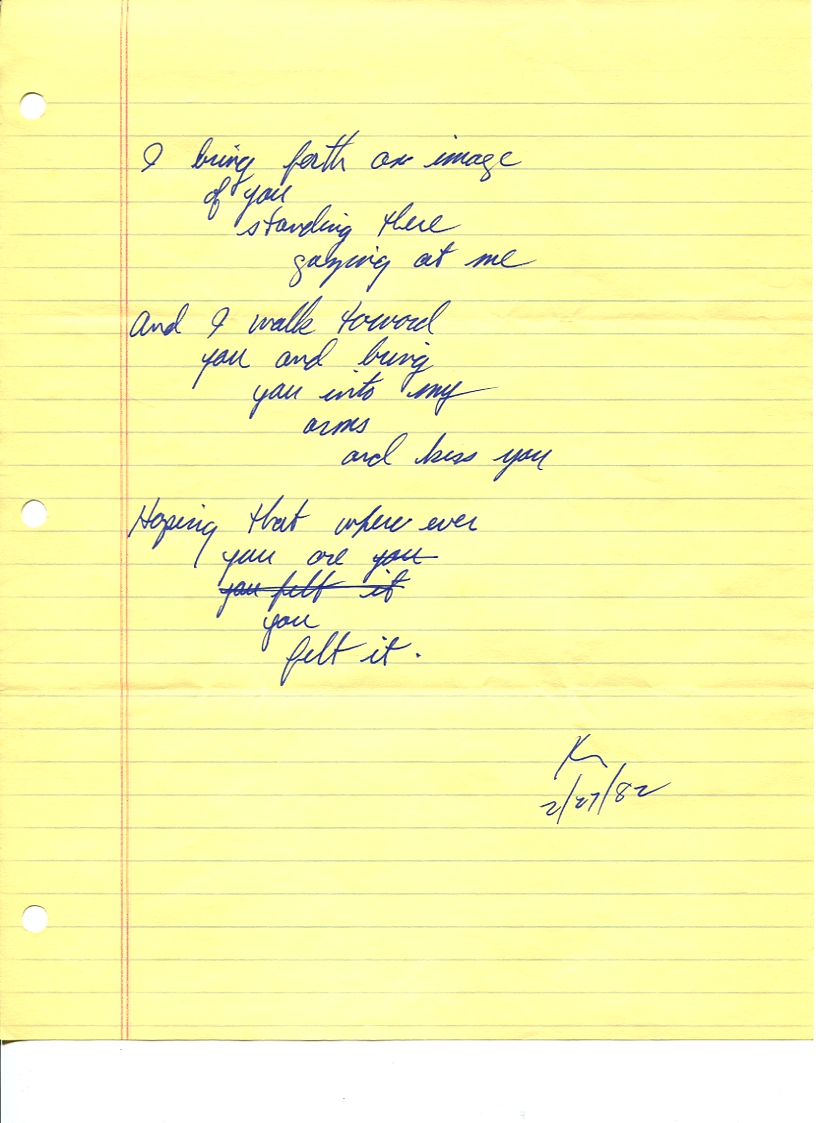 I bring forth an image
of you
standing there
gazing at me
And I walk toward
you and bring
you into my
arms
and kiss you
Hoping that where ever
you are you
you felt it
you
felt it.
2/27/82